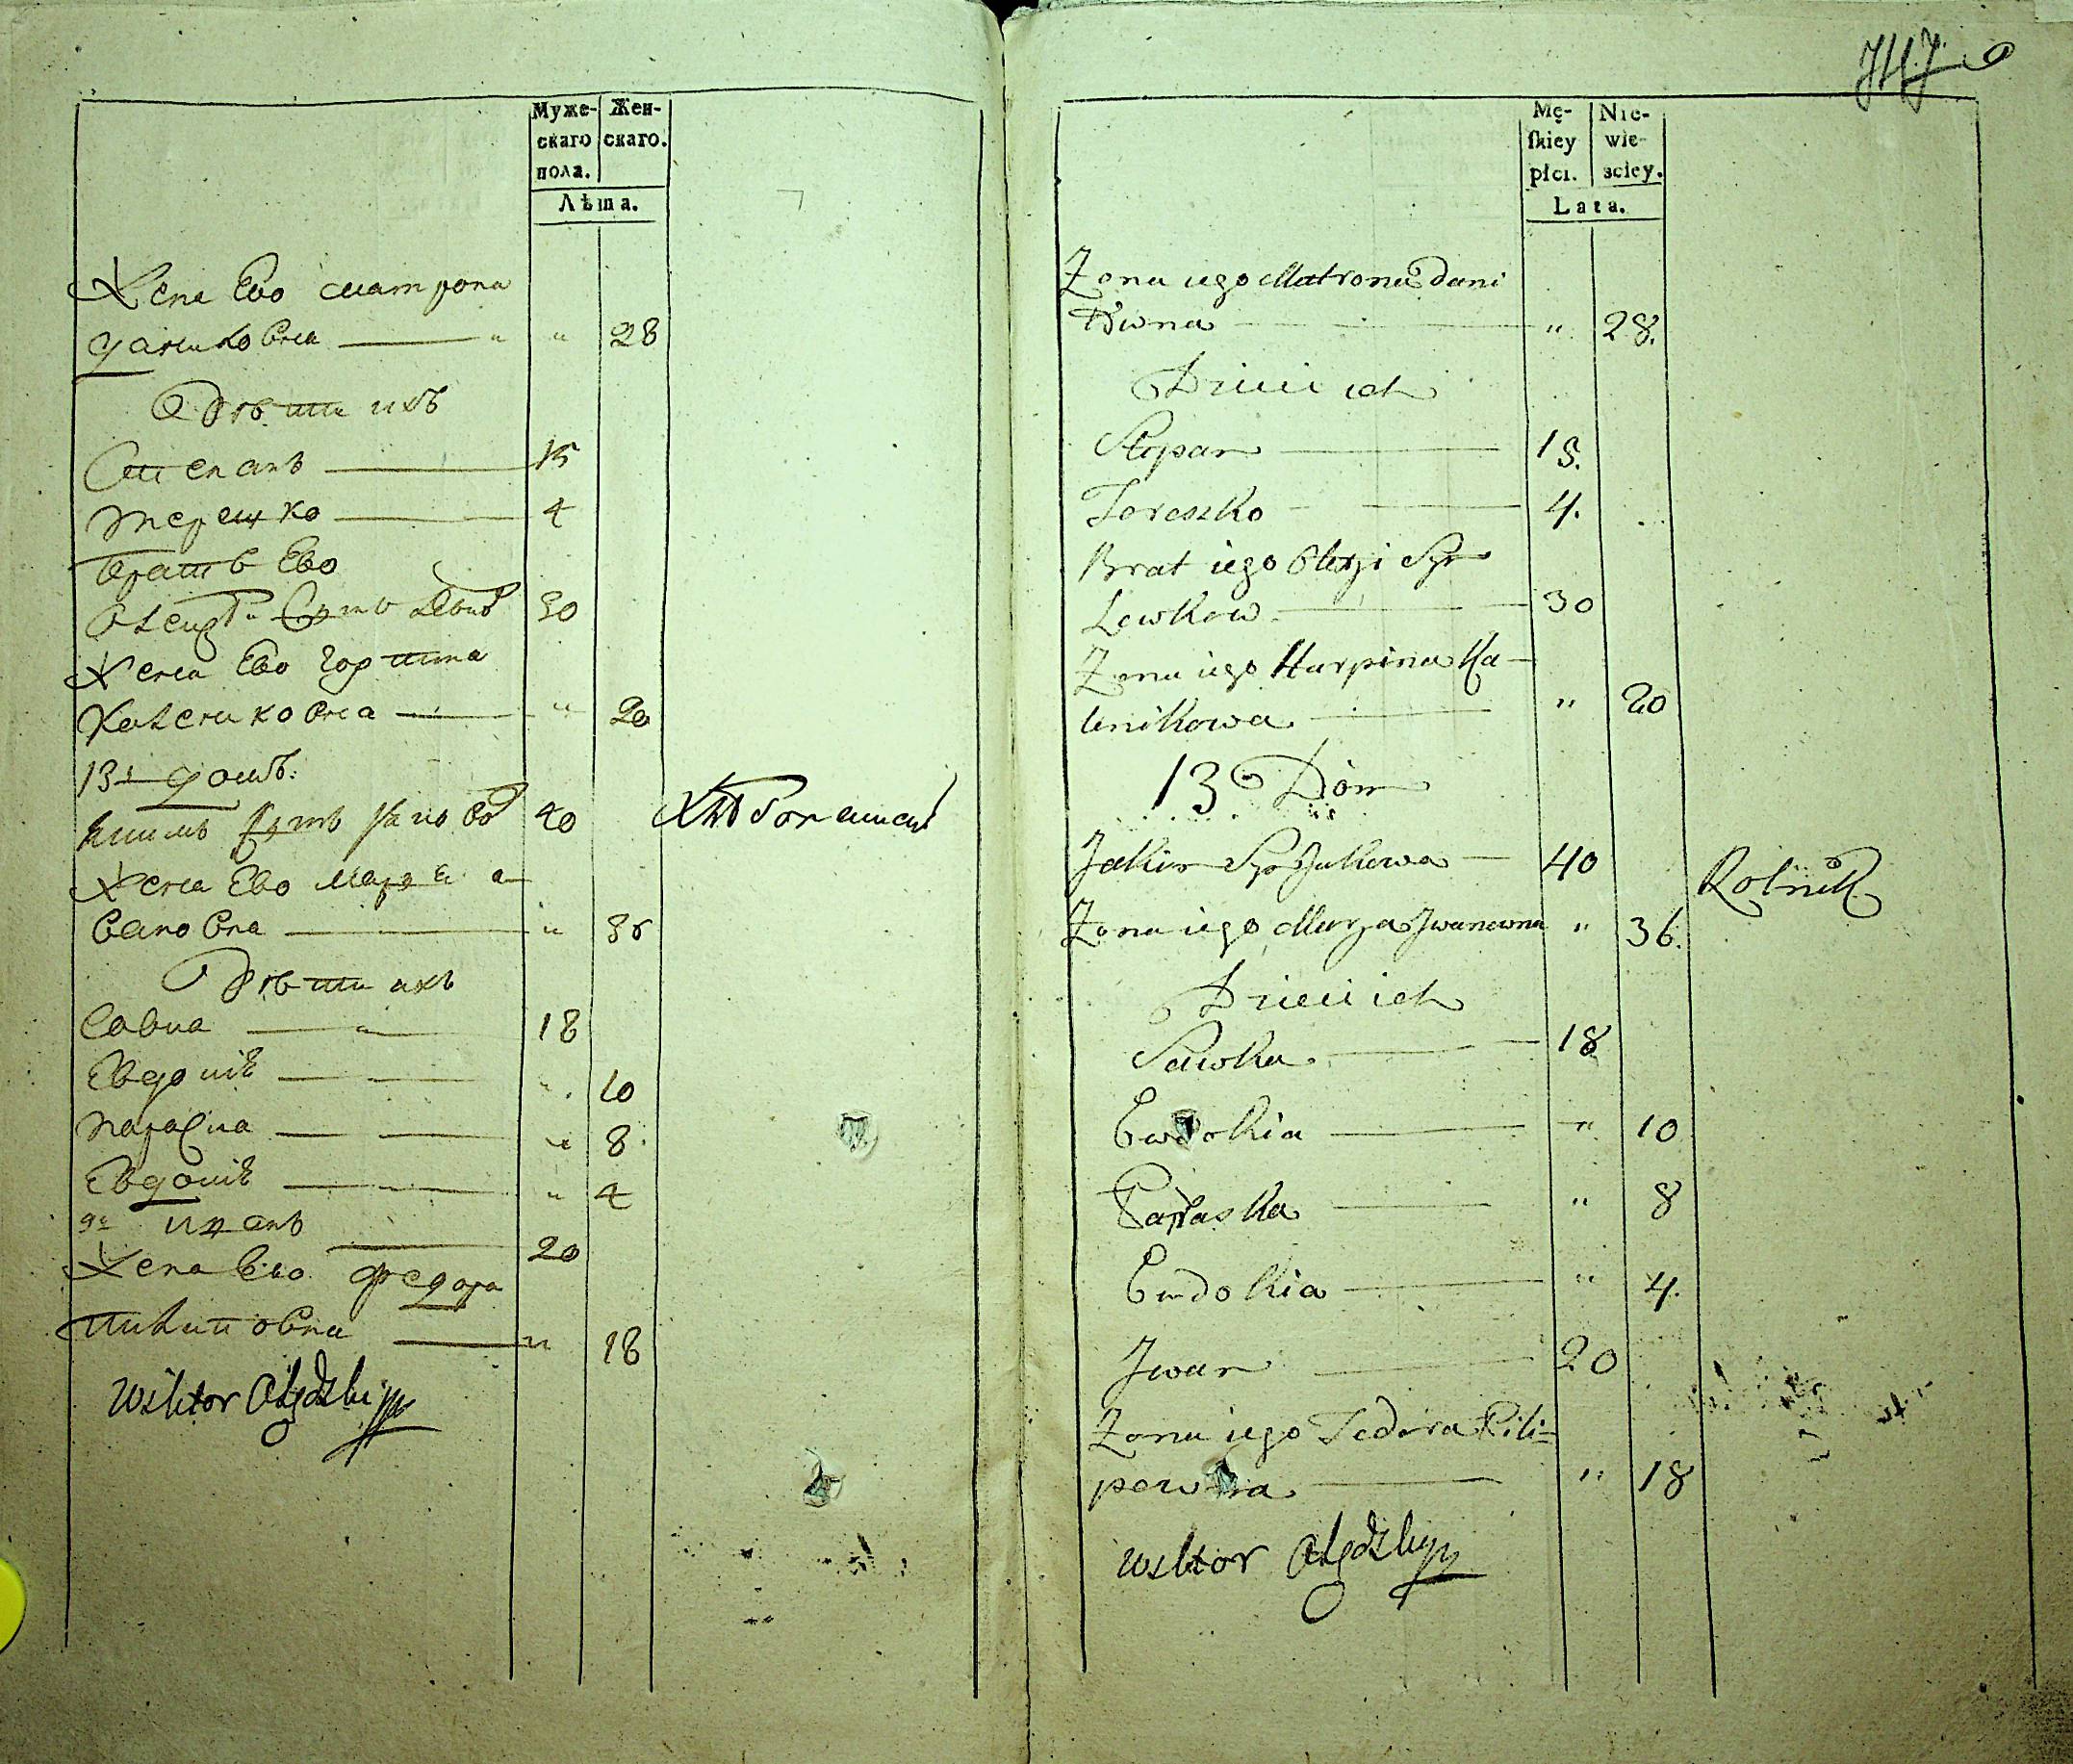 Муже-
скаго
пола.
Жен-
скаго.
Лѣта.
Жена Ево матрона
данилковна — " " 28
Дѣти ихъ
Степанъ — 15
терешко — 4
братъ Ево
30
Жена Ево
— " 20
13й домъ:
Якимъ 40
Жена Ево Марья
вановна — " 36
Дѣти ихъ
Савка — 18
Евдокія — " 10
параска — " 8
Евдокія — " 4
Иванъ — 20
Жена Ево федора
пилиповна — " 18
Wiktor
Mę-
skiey
płci.
Nie-
wie-
sciey.
Lata.
Zona iego Matrona Dani
kowna — " 28.
Dzieci ich
Stepan — 15.
Tereszko — 4.
Brat iego Olexyi Syn
Lewkow — 30
Zona iego Harpina Ka-
lenikowa — " 20
13 Dom
Jakim Syn Jukowa — 40 Rolnik
Zona iego Marya Jwanowna " 36.
Dzieci ich
Sawka — 18
Ewdokia — " 10
Paraska — " 8
Ewdokia — " 4.
Jwan — 20
Zona iego Fedora Pili=
powna — " 18
Wiktor